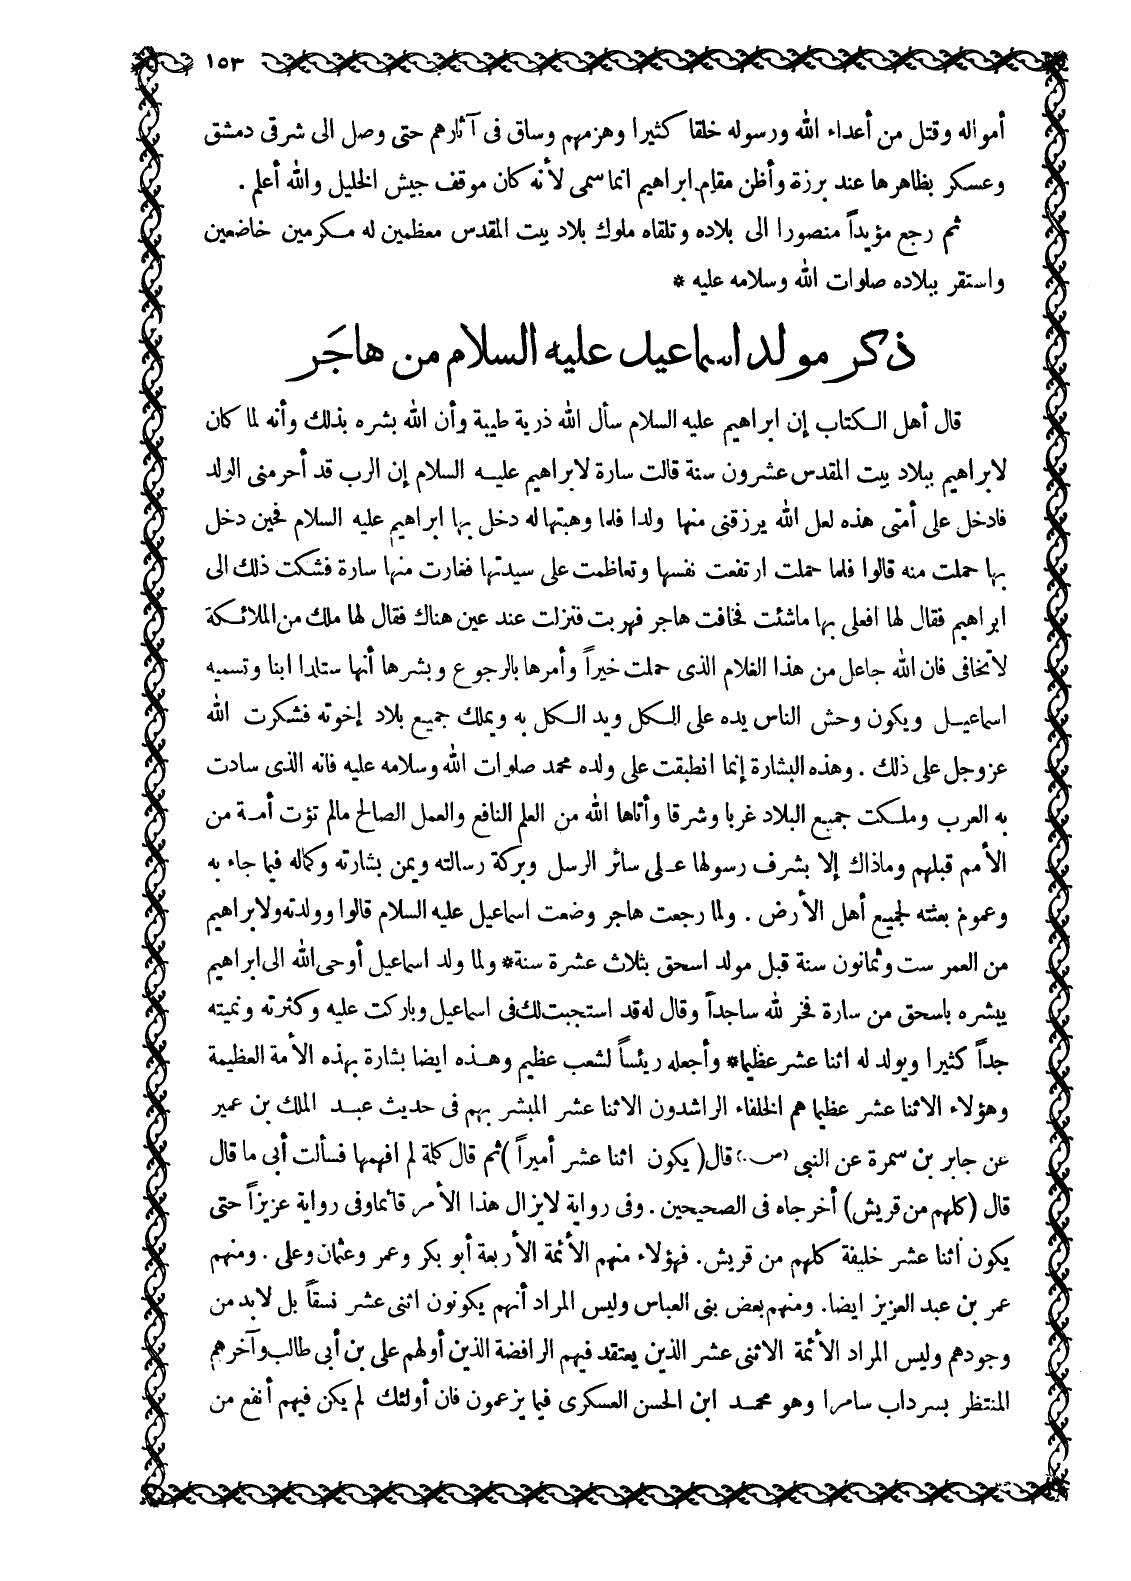 ١٥٣
أمواله وقتل من أعداء الله ورسوله خلقا كثيرا وهزمهم وساق فى آثارهم حتى وصل الى شرقى دمشق
وعسكر بظاهرها عند برزة وأظن مقام ابراهيم انما سمى لأنه كان موقف جيش الخليل والله أعلم .
ثم رجع مؤيداً منصورا الى بلاده وتلقاه ملوك بلاد بيت المقدس معظمين له مكرمين خاضعين
واستقر ببلاده صلوات الله وسلامه عليه *
ذكر مولد اسماعيل عليه السلام من هاجَر
قال أهل الكتاب إن ابراهيم عليه السلام سأل الله ذرية طيبة وأن الله بشره بذلك وأنه لما كان
لابراهيم ببلاد بيت المقدس عشرون سنة قالت سارة لابراهيم عليه السلام إن الرب قد أحرمنى الولد
فادخل على أمتى هذه لعل الله يرزقنى منها ولدا فلما وهبتها له دخل بها ابراهيم عليه السلام فحين دخل
بها حملت منه قالوا فلما حملت ارتفعت نفسها وتعاظمت على سيدتها فغارت منها سارة فشكت ذلك الى
ابراهيم فقال لها افعلى بها ماشئت فخافت هاجر فهربت فنزلت عند عين هناك فقال لها ملك من الملائكة
لاتخافى فان الله جاعل من هذا الغلام الذى حملت خيراً وأمرها بالرجوع وبشرها أنها ستلدا ابنا وتسميه
اسماعيل ويكون وحش الناس يده على الكل ويد الكل به ويملك جميع بلاد إخوته فشكرت الله
عزوجل على ذلك . وهذه البشارة إنما انطبقت على ولده محمد صلوات الله وسلامه عليه فانه الذى سادت
به العرب وملكت جميع البلاد غربا وشرقا وأتاها الله من العلم النافع والعمل الصالح مالم تؤت أمة من
الأمم قبلهم وماذاك إلا بشرف رسولها على سائر الرسل وبركة رسالته ويمن بشارته وكماله فيما جاء به
وعموم بعثته لجميع أهل الأرض . ولما رجعت هاجر وضعت اسماعيل عليه السلام قالوا وولدته ولابراهيم
من العمر ست وثمانون سنة قبل مولد اسحق بثلاث عشرة سنة* ولما ولد اسماعيل أوحى الله الى ابراهيم
يبشره باسحق من سارة فخر لله ساجداً وقال له قد استجبت لك فى اسماعيل وباركت عليه وكثرته ونميته
جداً كثيرا ويولد له اثنا عشر عظيما* وأجعله رئيساً لشعب عظيم وهذه ايضا بشارة بهذه الأمة العظيمة
وهؤلاء الاثنا عشر عظيما هم الخلفاء الراشدون الاثنا عشر المبشر بهم فى حديث عبد الملك بن عمير
عن جابر بن سمرة عن النبى (ص.) قال( يكون اثنا عشر أميراً )ثم قال كلمة لم افهمها فسألت أبى ما قال
قال (كلهم من قريش) أخرجاه فى الصحيحين . وفى رواية لايزال هذا الأمر قائما وفى رواية عزيزاً حتى
يكون أثنا عشر خليفة كلهم من قريش. فهؤلاء منهم الأئمة الأربعة أبو بكر وعمر وعثمان وعلى . ومنهم
عمر بن عبد العزيز ايضا. ومنهم بعض بنى العباس وليس المراد أنهم يكونون اثنى عشر نسقاً بل لابد من
وجودهم وليس المراد الأئمة الاثنى عشر الذين يعتقد فيهم الرافضة الذين أولهم على بن أبى طالب وآخرهم
المنتظر بسرداب سامرا وهو محمد ابن الحسن العسكرى فيما يزعمون فان أولئك لم يكن فيهم أنفع من